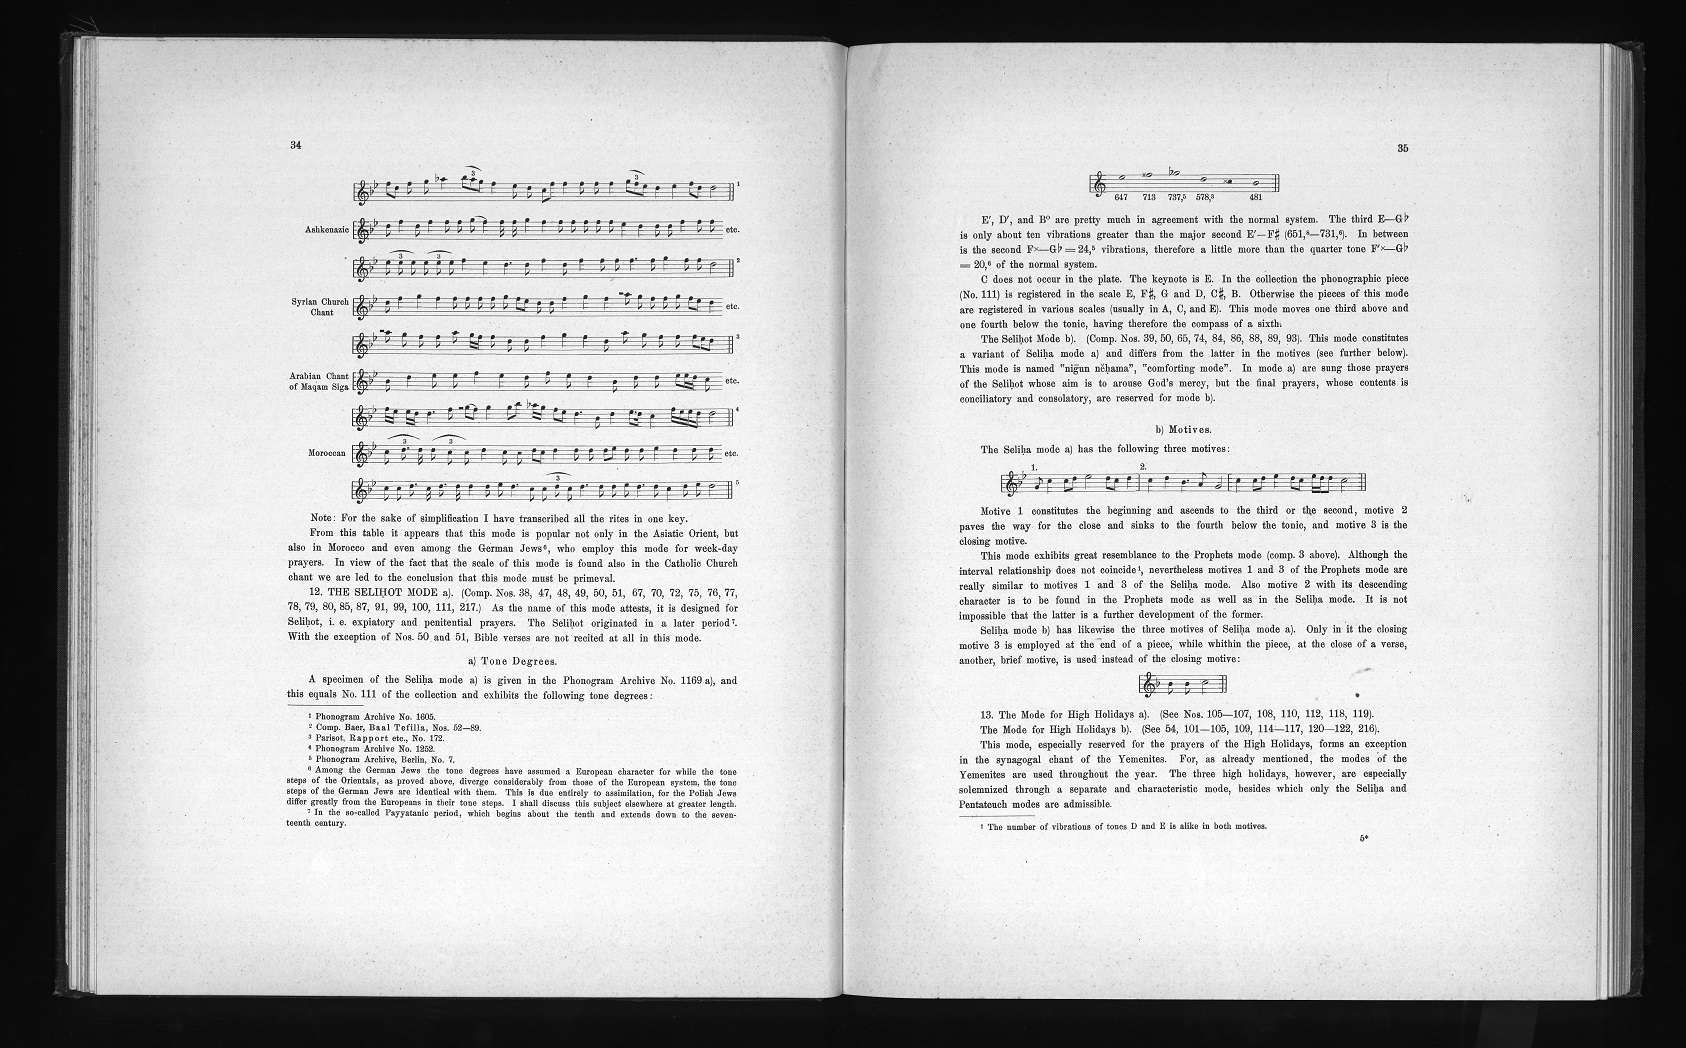 34
3
3
1
Ashkenazic
etc.
3
3
2
Syrian Church
Chant
etc.
3
Arabian Chant
of Maqam Siga
etc.
4
Moroccan
3
3
etc.
3
5
Note: For the sake of simplification I have transcribed all the rites in one key.
From this table it appears that this mode is popular not only in the Asiatic Orient, but
also in Morocco and even among the German Jews⁶, who employ this mode for week-day
prayers. In view of the fact that the scale of this mode is found also in the Catholic Church
chant we are led to the conclusion that this mode must be primeval.
12. THE SELIḤOT MODE a). (Comp. Nos. 38, 47, 48, 49, 50, 51, 67, 70, 72, 75, 76, 77,
78, 79, 80, 85, 87, 91, 99, 100, 111, 217.) As the name of this mode attests, it is designed for
Seliḥot, i. e. expiatory and penitential prayers. The Seliḥot originated in a later period⁷.
With the exception of Nos. 50 and 51, Bible verses are not recited at all in this mode.
a) Tone Degrees.
A specimen of the Seliḥa mode a) is given in the Phonogram Archive No. 1169 a), and
this equals No. 111 of the collection and exhibits the following tone degrees:
¹ Phonogram Archive No. 1605.
² Comp. Baer, Baal Tefilla, Nos. 52—89.
³ Parisot, Rapport etc., No. 172.
⁴ Phonogram Archive No. 1252.
⁵ Phonogram Archive, Berlin, No. 7.
⁶ Among the German Jews the tone degrees have assumed a European character for while the tone
steps of the Orientals, as proved above, diverge considerably from those of the European system, the tone
steps of the German Jews are identical with them. This is due entirely to assimilation, for the Polish Jews
differ greatly from the Europeans in their tone steps. I shall discuss this subject elsewhere at greater length.
⁷ In the so-called Payyatanic period, which begins about the tenth and extends down to the seven-
teenth century.
35
647 713 737,⁵ 578,³ 481
E′, D′, and B⁰ are pretty much in agreement with the normal system. The third E—G♭
is only about ten vibrations greater than the major second E′—F♯ (651,⁸—731,⁶). In between
is the second F×—G♭ = 24,⁵ vibrations, therefore a little more than the quarter tone F′×—G♭
= 20,⁶ of the normal system.
C does not occur in the plate. The keynote is E. In the collection the phonographic piece
(No. 111) is registered in the scale E, F♯, G and D, C♯, B. Otherwise the pieces of this mode
are registered in various scales (usually in A, C, and E). This mode moves one third above and
one fourth below the tonic, having therefore the compass of a sixth.
The Seliḥot Mode b). (Comp. Nos. 39, 50, 65, 74, 84, 86, 88, 89, 93). This mode constitutes
a variant of Seliḥa mode a) and differs from the latter in the motives (see further below).
This mode is named "niḡun nĕḥama", "comforting mode". In mode a) are sung those prayers
of the Seliḥot whose aim is to arouse God's mercy, but the final prayers, whose contents is
conciliatory and consolatory, are reserved for mode b).
b) Motives.
The Seliḥa mode a) has the following three motives:
1. 2.
Motive 1 constitutes the beginning and ascends to the third or the second, motive 2
paves the way for the close and sinks to the fourth below the tonic, and motive 3 is the
closing motive.
This mode exhibits great resemblance to the Prophets mode (comp. 3 above). Although the
interval relationship does not coincide¹, nevertheless motives 1 and 3 of the Prophets mode are
really similar to motives 1 and 3 of the Seliḥa mode. Also motive 2 with its descending
character is to be found in the Prophets mode as well as in the Seliḥa mode. It is not
impossible that the latter is a further development of the former.
Seliḥa mode b) has likewise the three motives of Seliḥa mode a). Only in it the closing
motive 3 is employed at the end of a piece, while whithin the piece, at the close of a verse,
another, brief motive, is used instead of the closing motive:
13. The Mode for High Holidays a). (See Nos. 105—107, 108, 110, 112, 118, 119).
The Mode for High Holidays b). (See 54, 101—105, 109, 114—117, 120—122, 216).
This mode, especially reserved for the prayers of the High Holidays, forms an exception
in the synagogal chant of the Yemenites. For, as already mentioned, the modes of the
Yemenites are used throughout the year. The three high holidays, however, are especially
solemnized through a separate and characteristic mode, besides which only the Seliḥa and
Pentateuch modes are admissible.
¹ The number of vibrations of tones D and E is alike in both motives.
5*